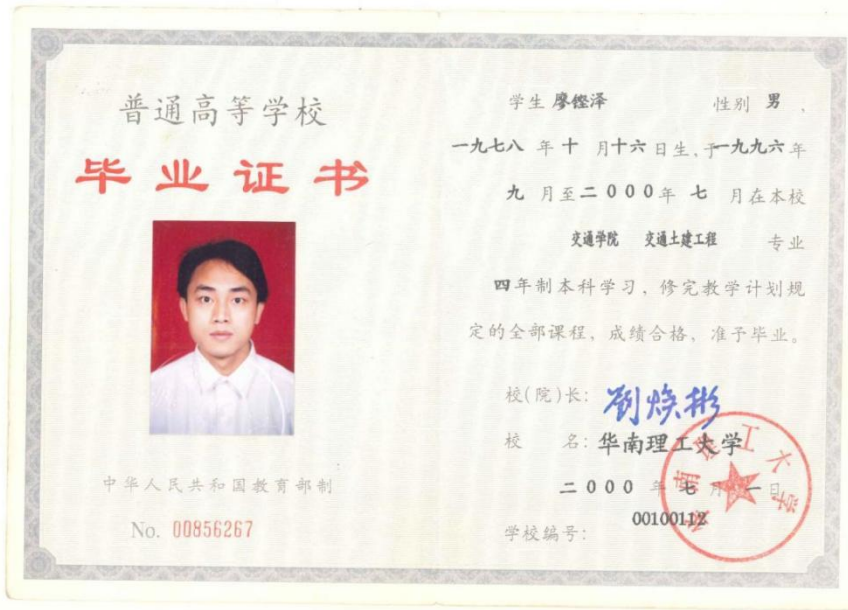 普通高等学校
毕业证书
中华人民共和国教育部制
No. 00856267
学生 廖铿泽 性别 男、
一九七八年十月十六日生,于一九九六年
九月至二000年七月在本校
交通学院 交通土建工程 专业
四年制本科学习、修完教学计划规
定的全部课程,成绩合格,准予毕业。
校(院)长: 劉焕彬
校 名: 华南理工大学
二000年七月一日
学校编号: 00100112
华南理工大学